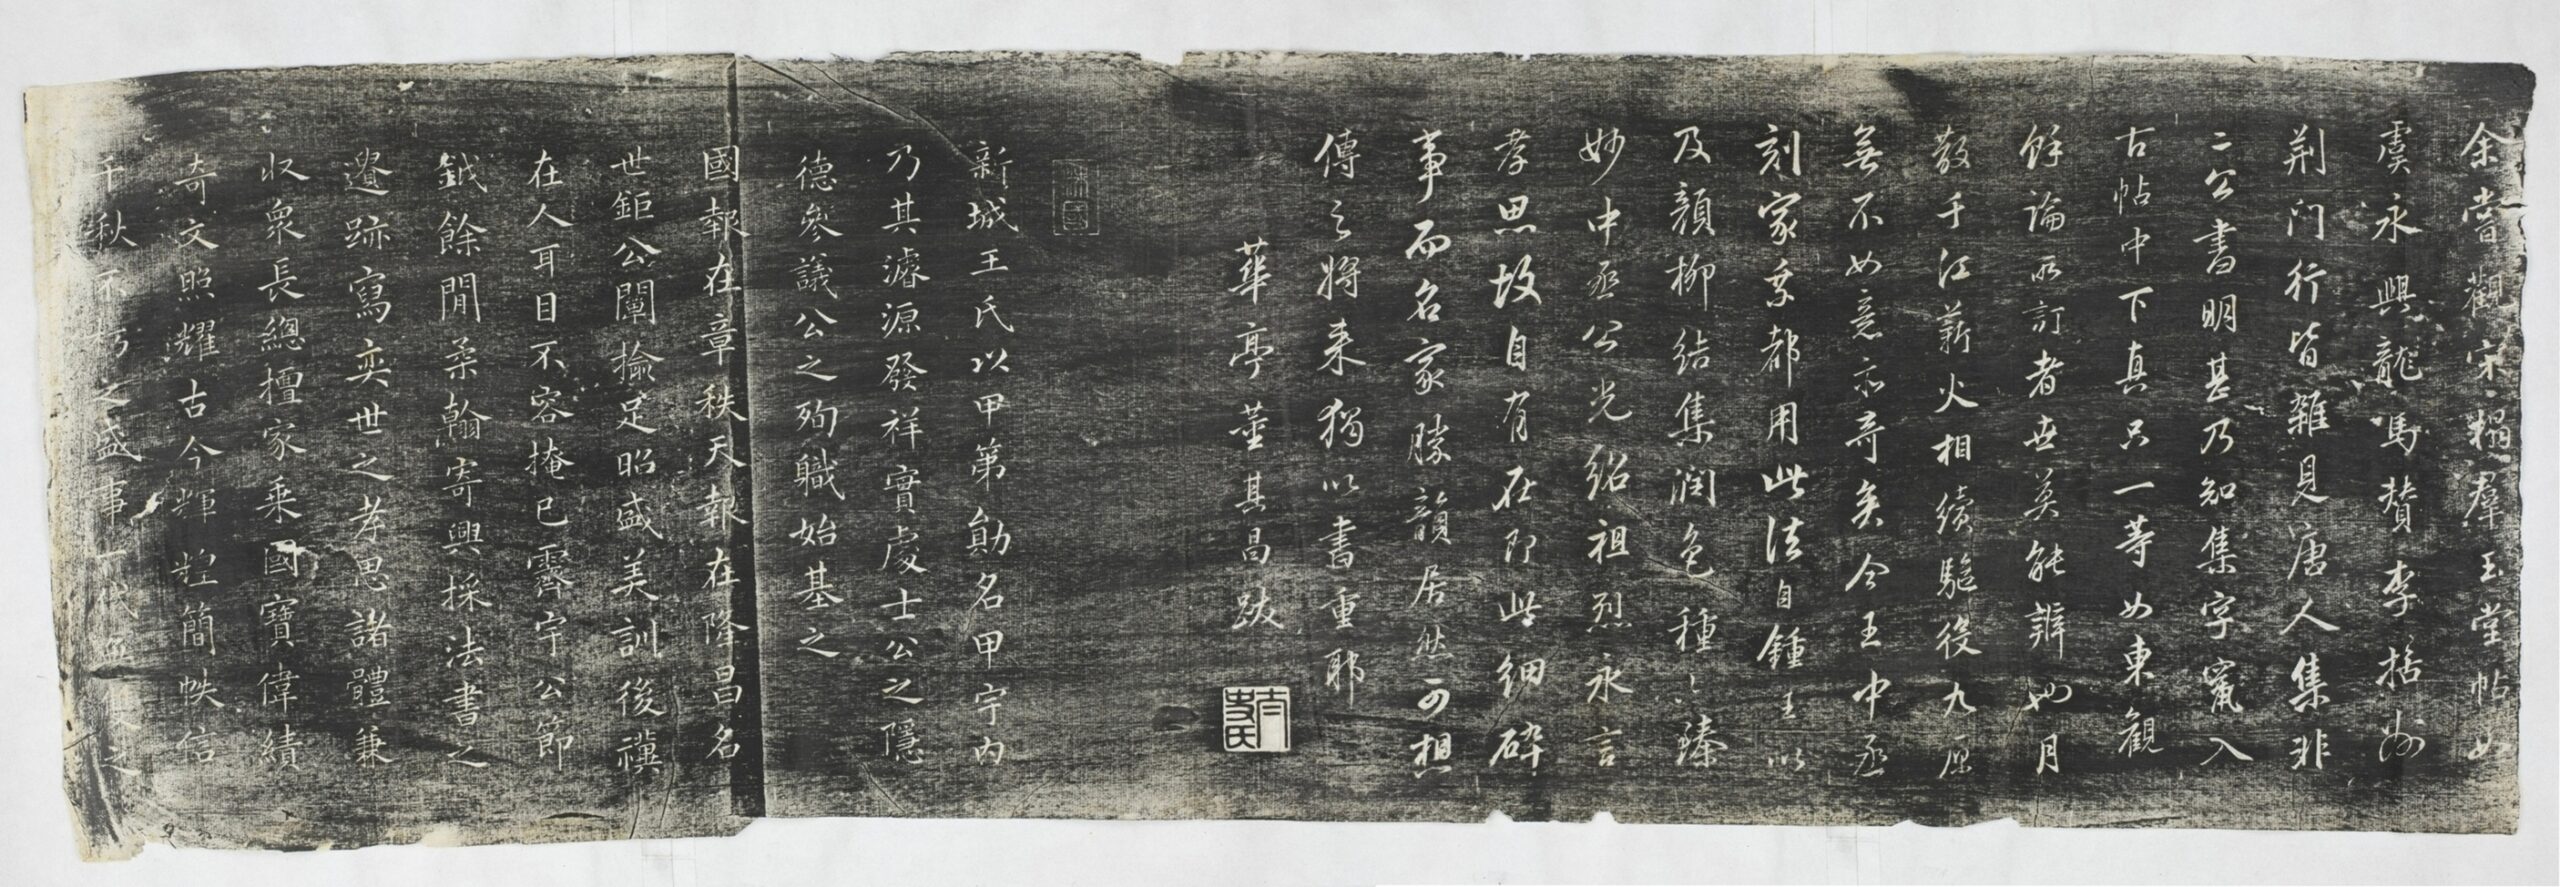 余嘗觀宋搨羣玉堂帖如
虞永興龍馬贊李括州
荆门行皆雜見唐人集非
二公書明甚乃知集字竄入
古帖中下真只一等如東觀
餘論所訂者世莫能辨也月
散千江薪火相續驅役九原
無不如意亦奇矣今王中丞
刻家乘都用此法自鍾王以
及顏柳結集潤色種〻臻
妙中丞公光紹祖烈永言
孝思故自有在即此細碎
事而名家勝韻居然可想
傳之將来獨以書重耶
華亭董其昌跋
太史氏
新城王氏以甲第勛名甲宇内
乃其濬源發祥實處士公之隱
德參議公之殉職始基之
國報在章秩天報在隆昌名
世鉅公闡揄足昭盛美訓後禩
在人耳目不容掩已霽宇公節
鉞餘閒柔翰寄興採法書之
遺跡寫奕世之孝思諸體兼
收衆長總擅家乘國寶偉績
奇文照耀古今輝煌簡帙信
千秋不朽之盛事一代無之